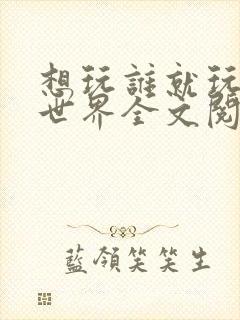 想玩誰就玩
世界全文閱
藍領笑笑生